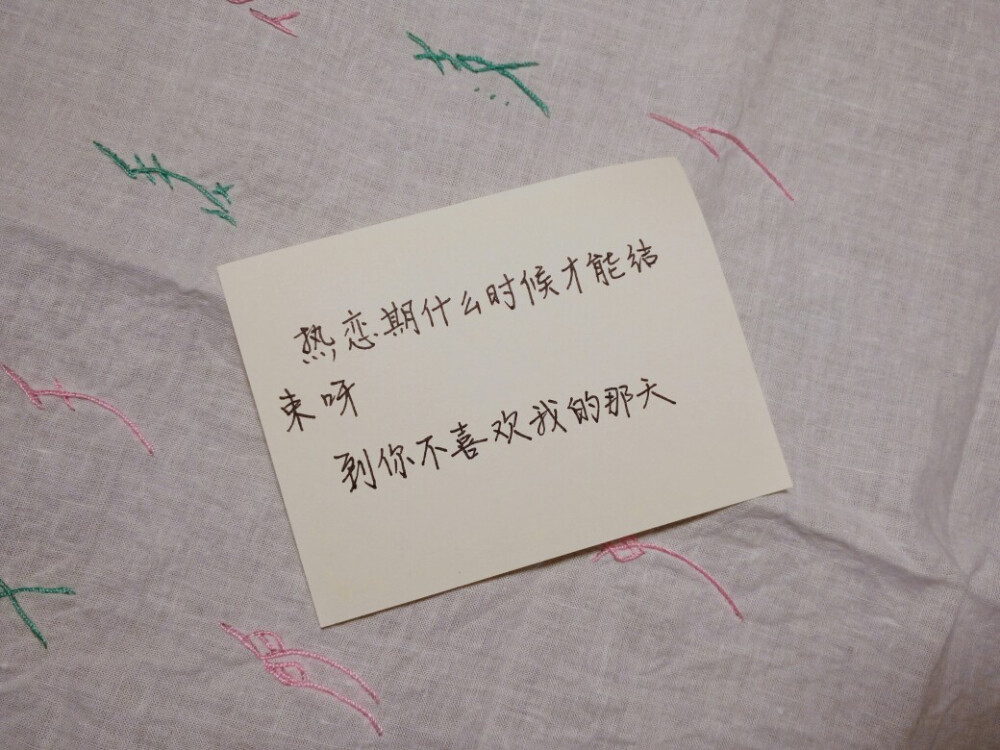 热恋期什么时候才能结
束呀
到你不喜欢我的那天